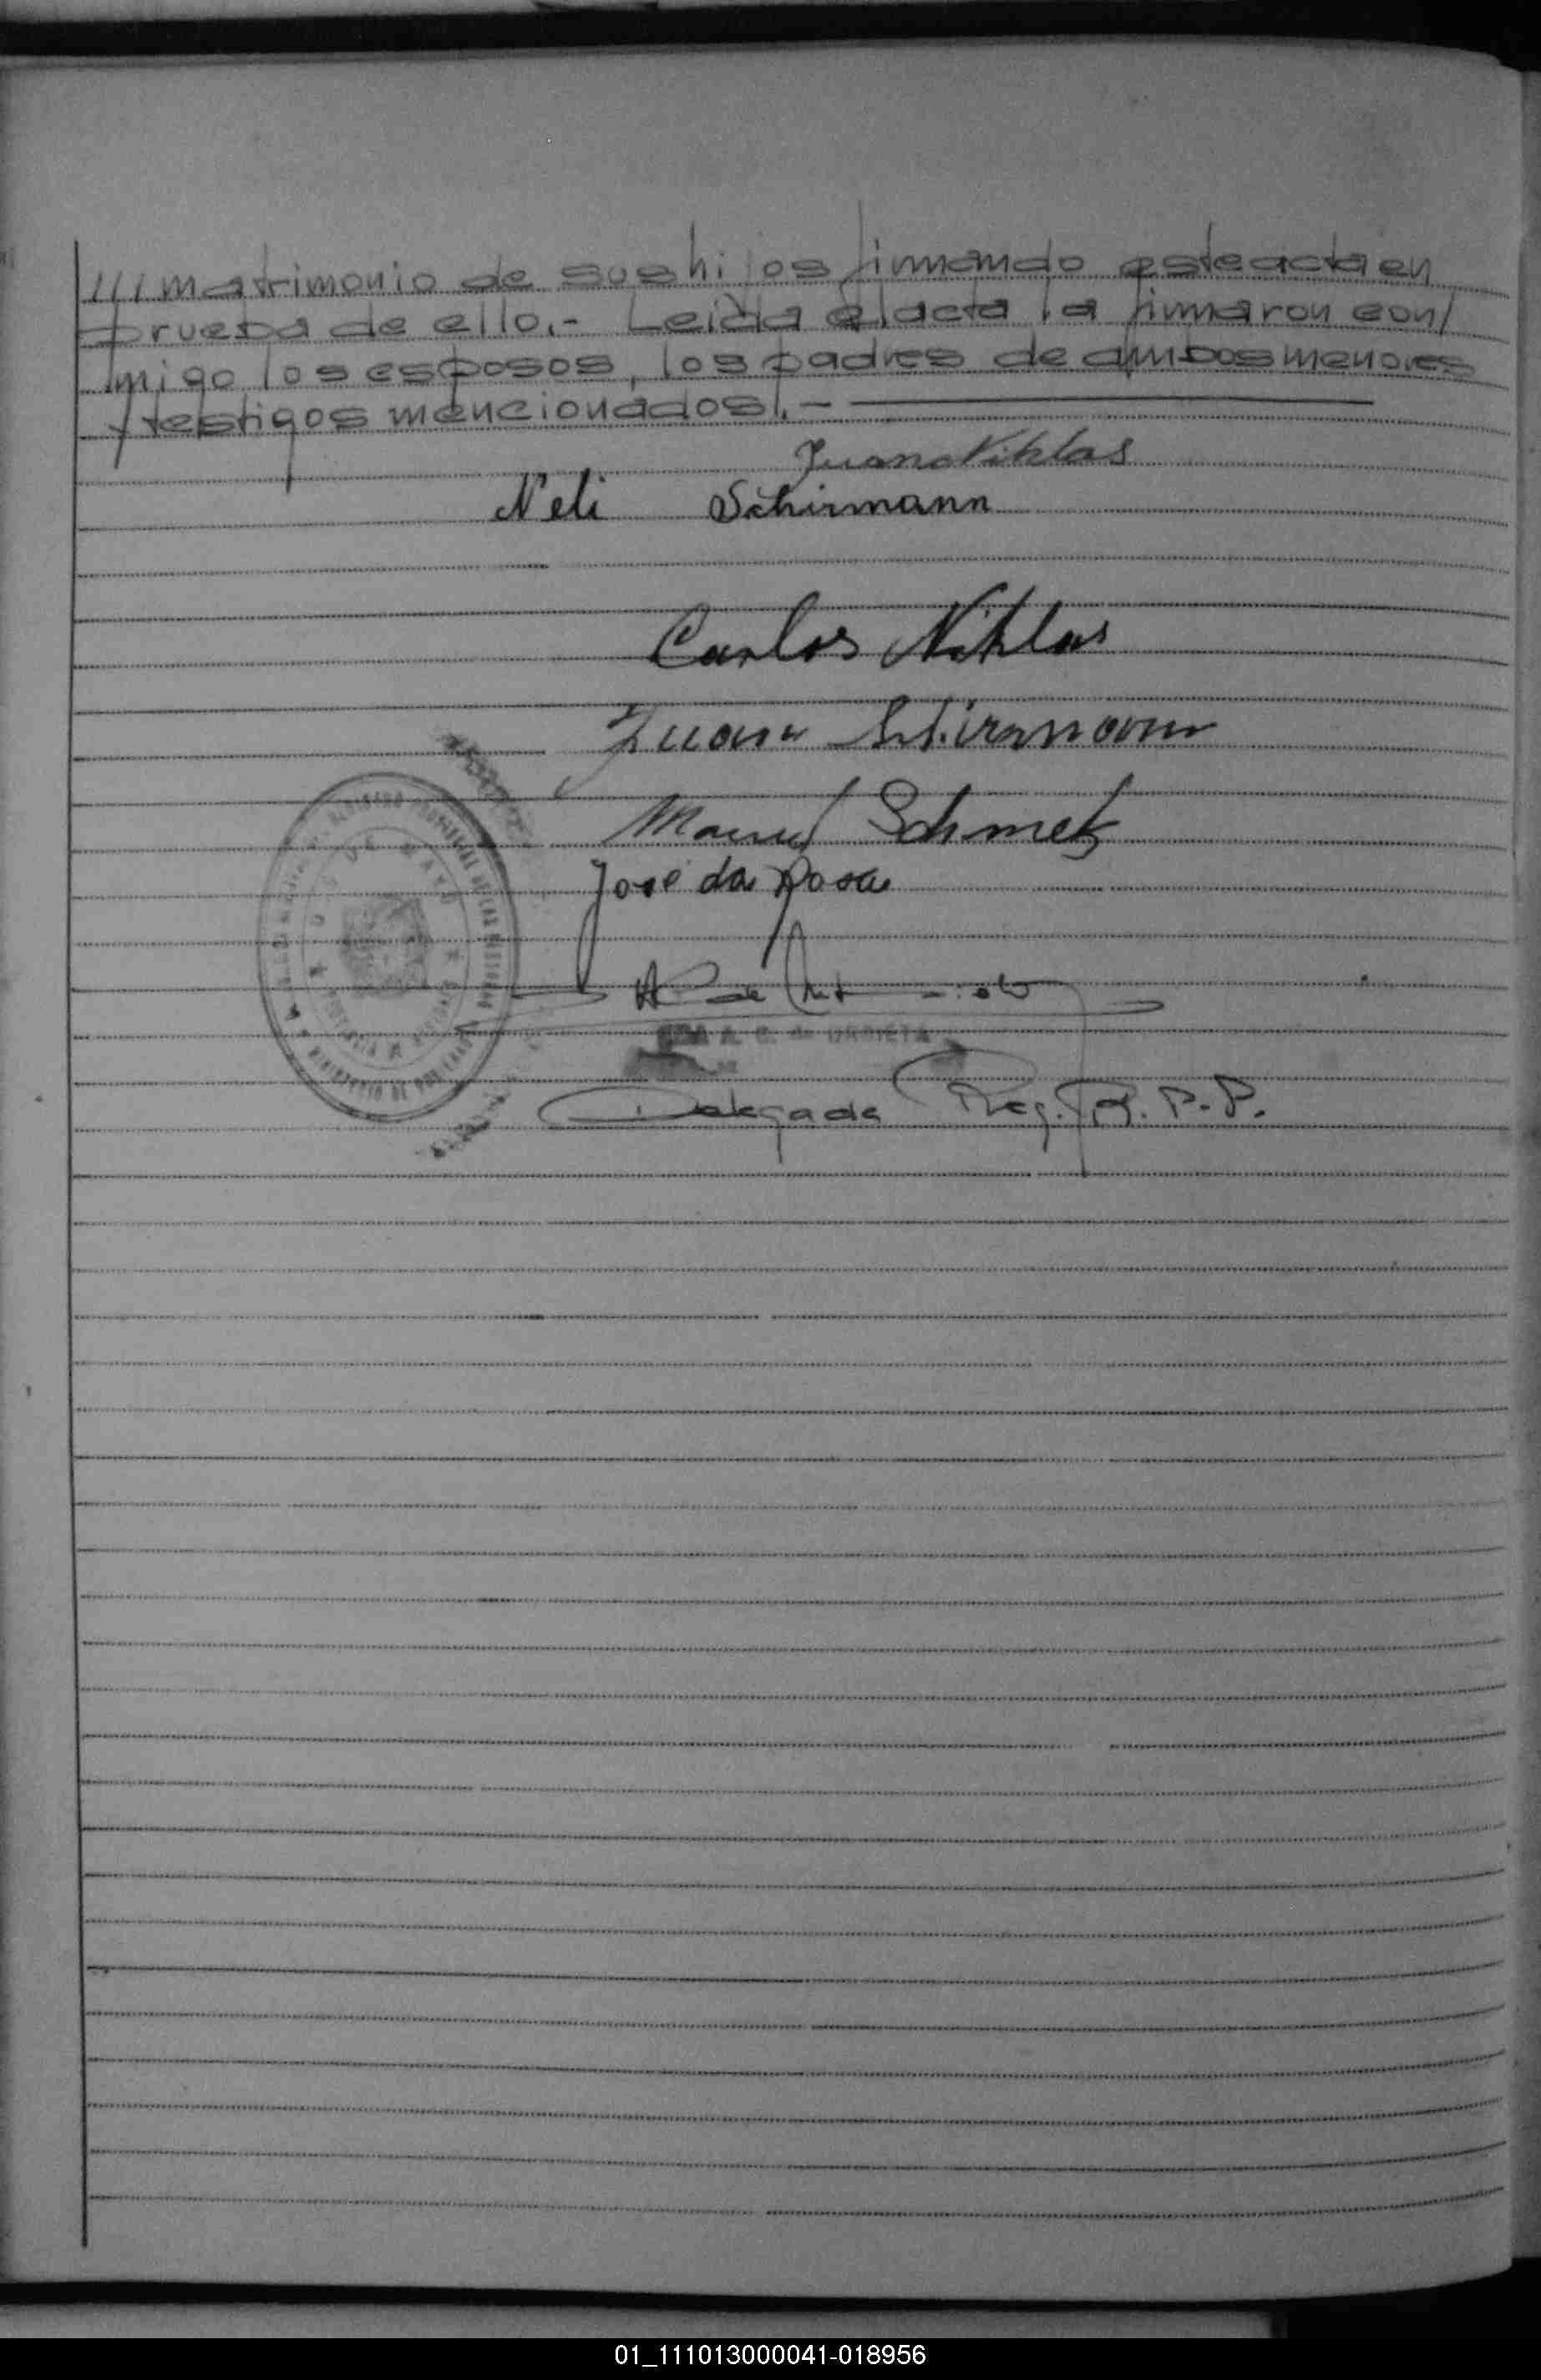 /// matrimonio de sus hijos firmando este acta en
prueba de ello.- Leida el acta la firmaron con/
migo los esposos, los padres de ambos menores
y testigos mencionados/.-
Juan Nikhlas
Neli Schirmann
Carlos Nikhlas
Juan Schirmann
Manuel Schmetz
José da Rosa
A. C. de URBIETA
Delegada Reg. R. P.-P.
01_111013000041-018956